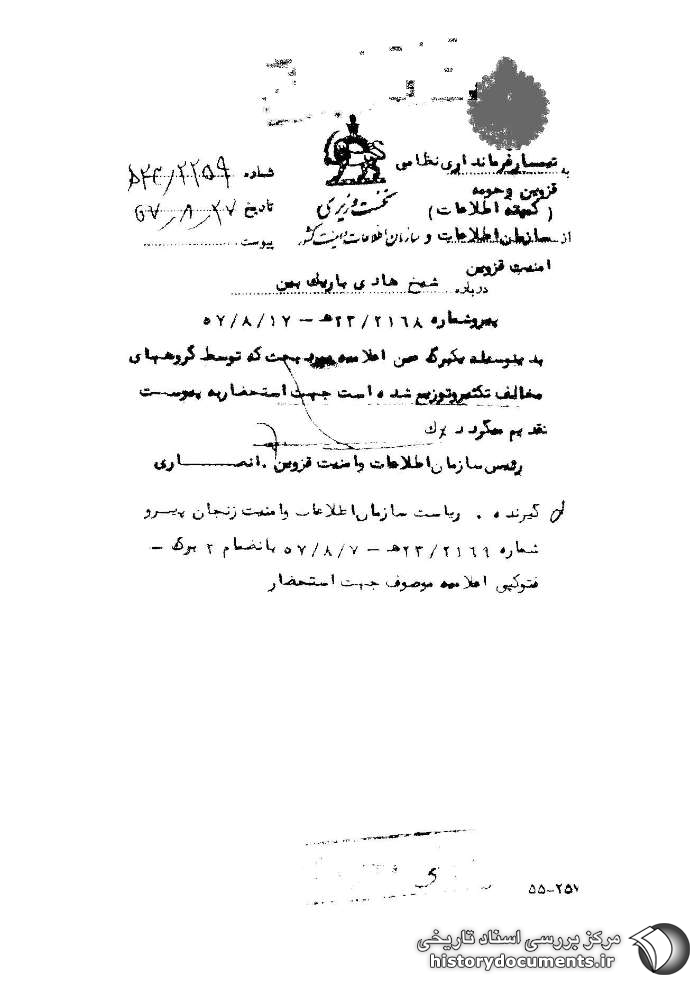 به تیمسار فرمانداری نظامی
قزوین و حومه
(کمیته اطلاعات)
از سازمان اطلاعات و
امنیت قزوین
نخست وزیری
سازمان اطلاعات و امنیت کشور
شماره ۲۲۵۹/
تاریخ ۵۷/۸/۲۷
پیوست
درباره شیخ هادی باریک بین
پیرو شماره ۲۳/۲۱۶۸ه‍ – ۵۷/۸/۱۷
بدینوسیله یکبرگ عین اعلامیه مورد بحث که توسط گروههای
مخالف تکثیر و توزیع شده است جهت استحضار به پیوست
تقدیم میگردد
رئیس سازمان اطلاعات و امنیت قزوین . انصاری
گیرنده . ریاست سازمان اطلاعات و امنیت زنجان پیرو
شماره ۲۳/۲۱۶۹ه‍ – ۵۷/۸/۷ بانضمام ۲ برگ –
فتوکپی اعلامیه موصوف جهت استحضار
۵۵-۲۵۷
مرکز بررسی اسناد تاریخی
historydocuments.ir